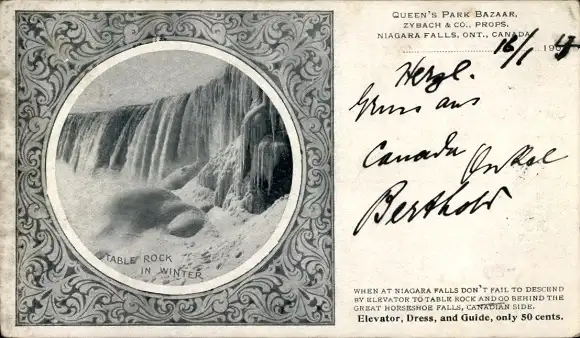 QUEEN'S PARK BAZAAR,
ZYBACH & CO., PROPS.
NIAGARA FALLS, ONT., CANADA
16/1 190
Herzl.
Gruss aus
Canada Onkel
Berthold
TABLE ROCK
IN WINTER
WHEN AT NIAGARA FALLS DON'T FAIL TO DESCEND
BY ELEVATOR TO TABLE ROCK AND GO BEHIND THE
GREAT HORSESHOE FALLS, CANADIAN SIDE.
Elevator, Dress, and Guide, only 50 cents.